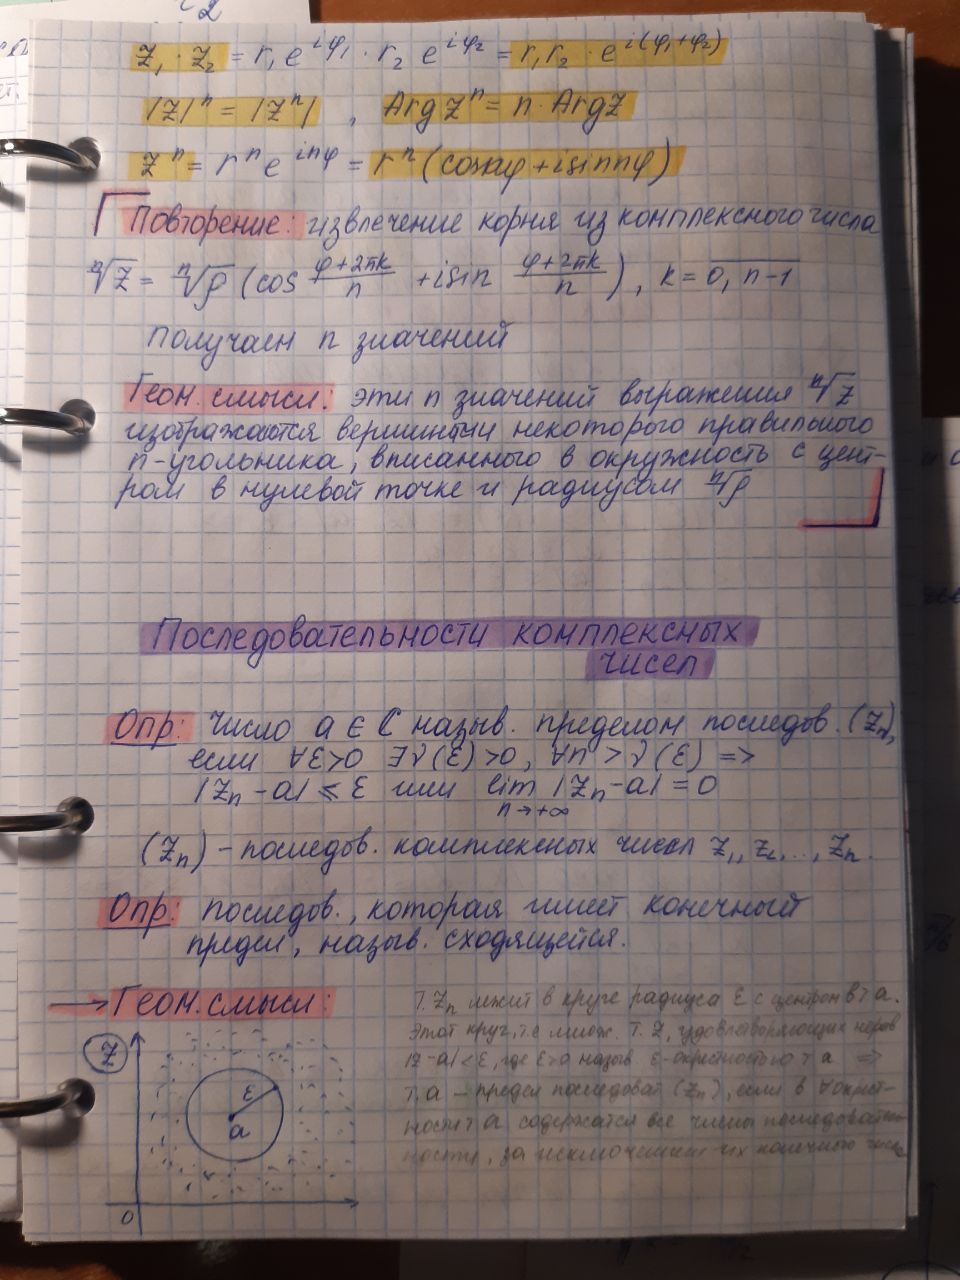 z₁ · z₂ = r₁ e^{iφ₁} · r₂ e^{iφ₂} = r₁r₂ · e^{i(φ₁+φ₂)}
|z|ⁿ = |zⁿ| , Arg zⁿ = n · Arg z
zⁿ = rⁿ e^{inφ} = rⁿ (cos nφ + i sin nφ)
Повторение: извлечение корня из комплексного числа
ⁿ√z = ⁿ√ρ (cos (φ+2πk)/n + i sin (φ+2πk)/n) , k = 0, n-1
Получаем n значений
Геом. смысл: эти n значений выражения ⁿ√z
изображаются вершинами некоторого правильного
n-угольника, вписанного в окружность с цент-
ром в нулевой точке и радиусом ⁿ√ρ
Последовательности комплексных
чисел
Опр: Число a ∈ C назыв. пределом последов. (zₙ),
если ∀ε>0 ∃ν(ε)>0, ∀n > ν(ε) =>
|zₙ - a| ⩽ ε или lim |zₙ - a| = 0
n→+∞
(zₙ) – последов. комплексных чисел z₁, z₂, ..., zₙ.
Опр: последов., которая имеет конечный
предел, назыв. сходящейся.
→ Геом. смысл:
т. zₙ лежит в круге радиуса ε с центром в т a.
Этот круг, т.е множ. т. z, удовлетворяющих нерав
|z - a| < ε, где ε>0 назыв ε-окрестностью т a =>
т. a – предел последоват (zₙ), если в ∀ окрест-
ности т a содержатся все члены последователь
ности, за исключением их конечного числа
z
ε
a
0